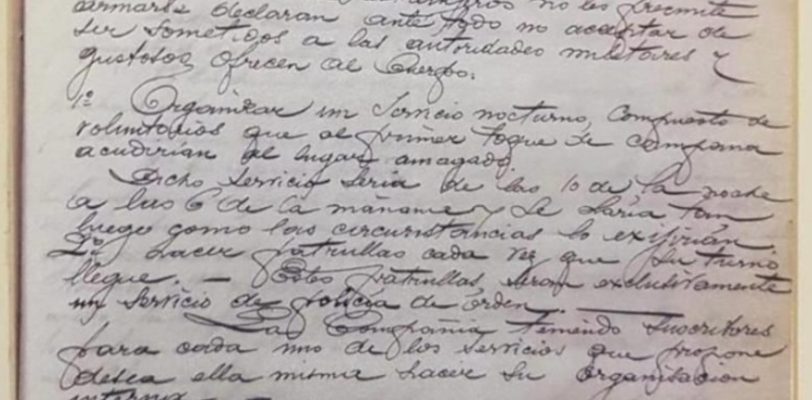 no les precmite
armarse declaran ante todo no aceptar de
ser sometidos a las autoridades militares y
gustosos ofrecen al Cuerpo.
1º Organizar un servicio nocturno, compuesto de
voluntarios que al primer toque de campana
acudirian al lugar amagado.
Dicho servicio seria de las 10 de la noche
a las 6 de la mañana y se haria tan
luego como las circunstancias lo exijirian.
2º hacer patrullas cada vez que su turno
llegue. — Estas patrullas seran exclusivamente
un servicio de policia de órden.
La Compañia teniendo suscritores
para cada uno de los servicios que propone
desea ella misma hacer su organisacion
interna —